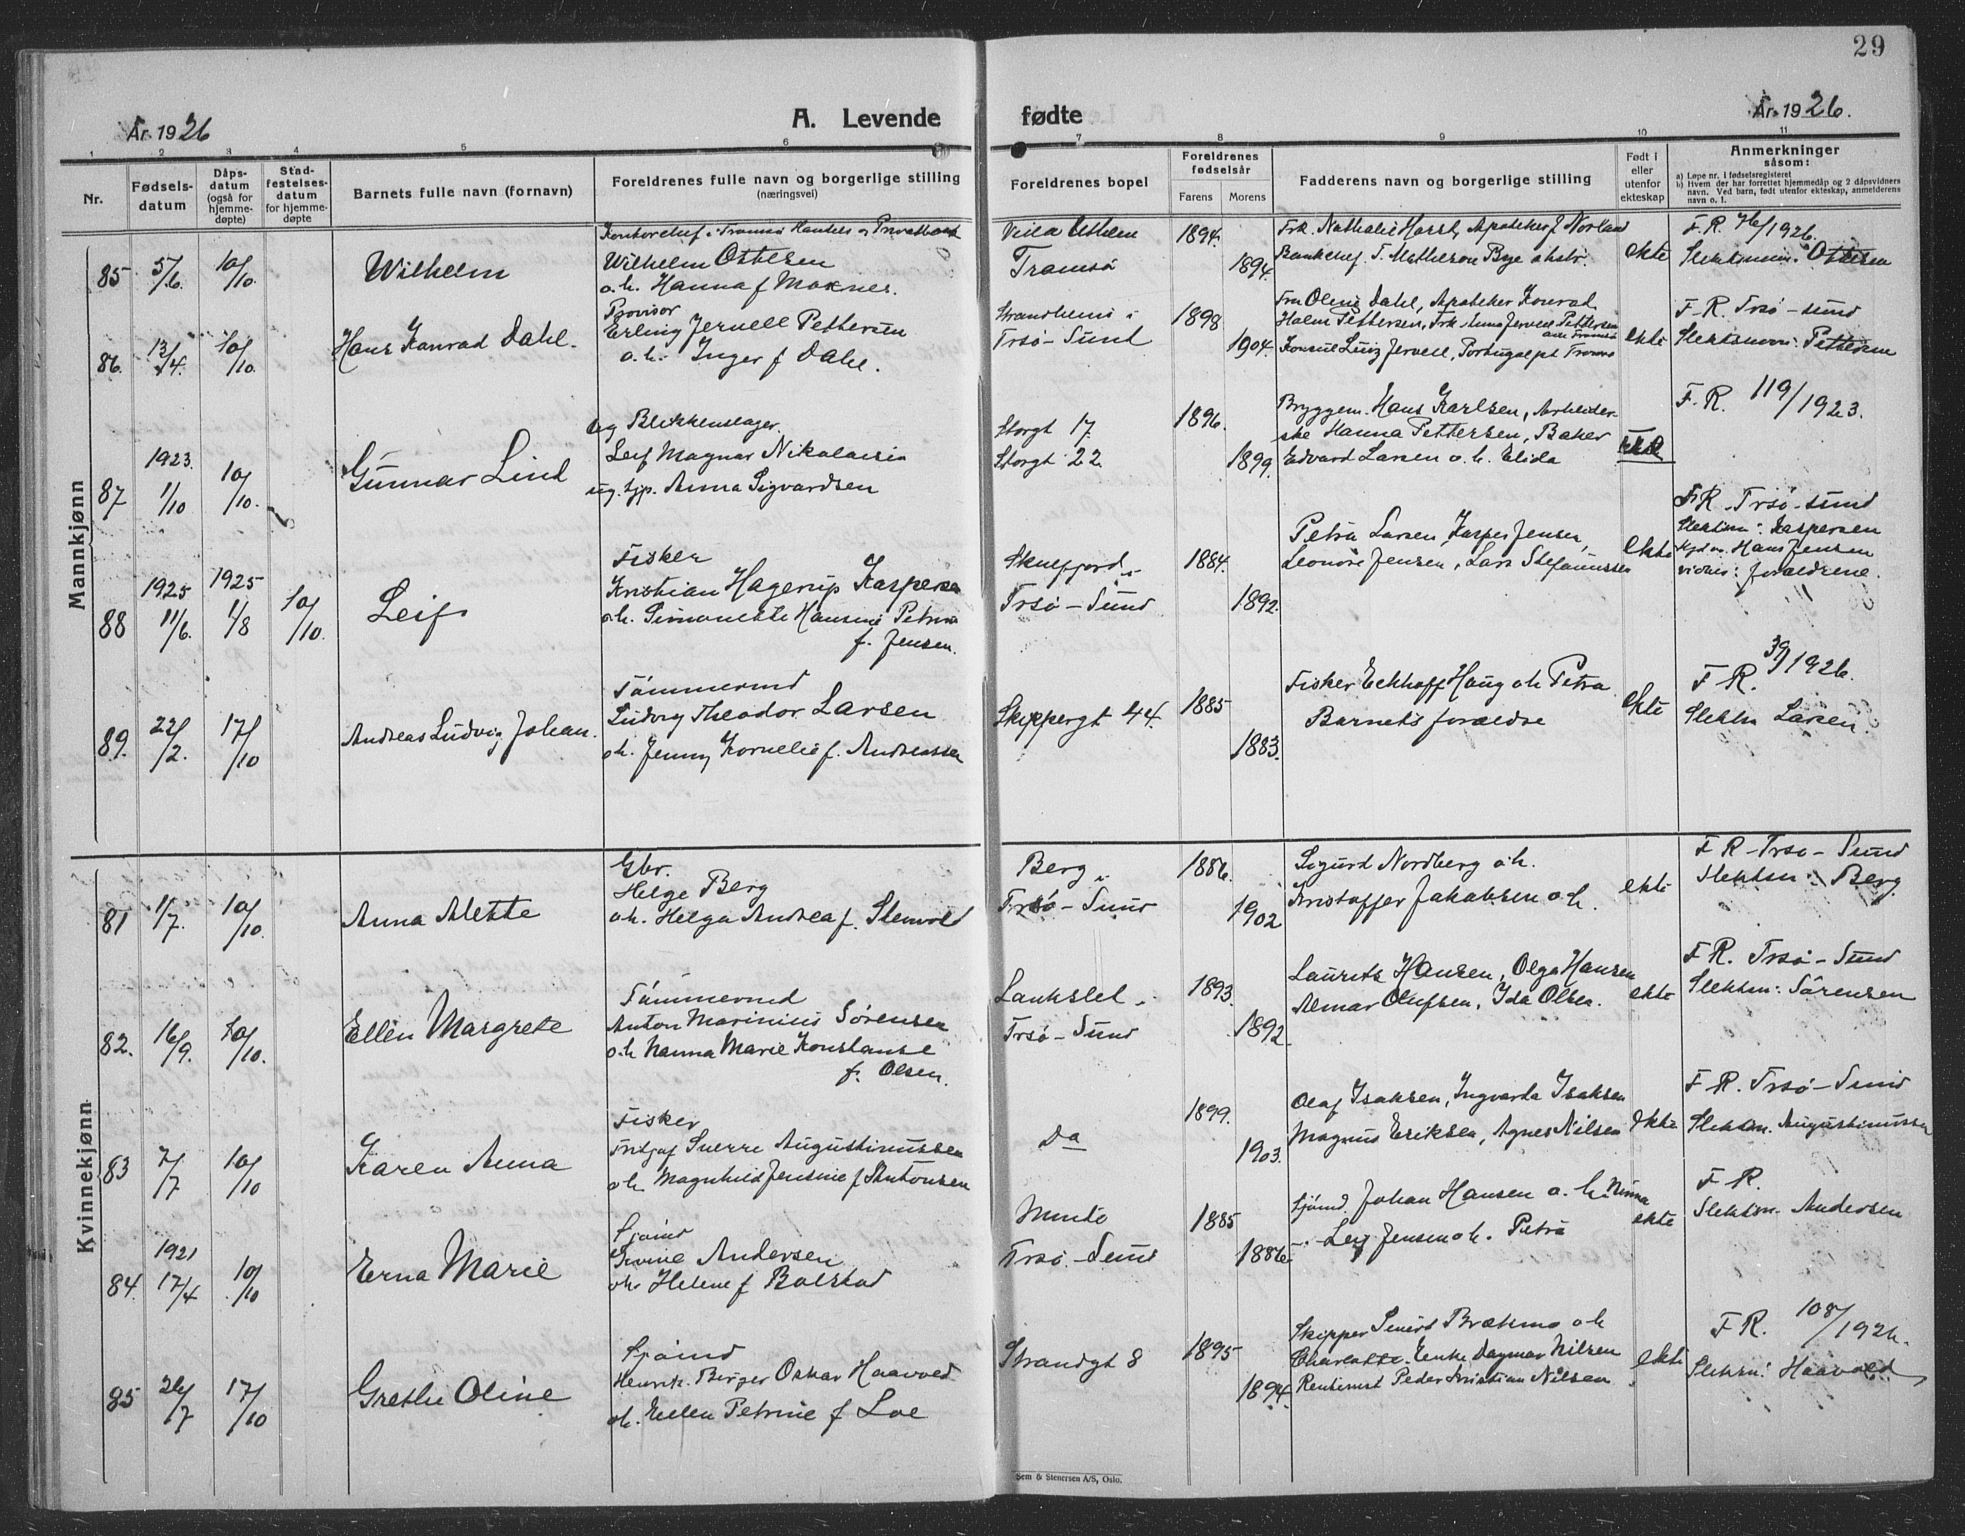 29
År 1926
A. Levende fødte
År 1926.
1 2 3 4 5 6 7 8 9 10 11
Nr.
Fødsels-
datum
Dåps-
datum
(også for
hjemme-
døpte)
Stad-
festelses-
datum
for hjemme-
døpte
Barnets fulle navn (fornavn)
Foreldrenes fulle navn og borgerlige stilling
(næringsvei)
Foreldrenes bopel
Foreldrenes
fødselsår
Farens Morens
Fadderens navn og borgerlige stilling
Født i
eller
utenfor
ekteskap
Anmerkninger
såsom:
a) Løpe nr. i fødselsregisteret
b) Hvem der har forrettet hjemmedåp og 2 dåpsvidners
navn. Ved barn, født utenfor ekteskap, anmelderens
navn o. l.
Mannkjønn
85 5/6. 10/10
Wilhelm
Kontorchef i Tromsø Handels og Privatbank
Wilhelm Ottesen
o.h. Hanna f Moknes.
Tromsø
1894.
1894.
ekte
F. R. 76/1926.
Slektsnavn: Ottesen
86. 13/4. 10/10
Hans Konrad Dahl.
Provisor
Erling Jervell Pettersen
o.h. Inger f Dahl.
Strandheim i
Trsø-Sund
1898
1904.
Fru Olena Dahl, Apoteker Konrad
Holm Pettersen, Frk. Anna Jervell Pettersen
alle Tromsø
ekte
F.R. Trsø-sund
Slektsnavn: Pettersen
87 1923. 1/10 10/10.
Gunnar Lind
Ug Blikkenslager.
Leif Magnar Nikolaisen
ug. tjp. Anna Sigvardsen
Storgt 17.
Storgt 22.
1896.
1899.
Bryggem. Hans Karlsen, Arbeider-
ske Hanna Pettersen, Baker
Edvard Larsen o.h. Elida
F. R. 119/1923.
88 1925 11/6. 1925 1/8 10/10.
Leif
Fisker
Kristian Hagerup Kaspersen
o.h. Simonette Hansine Petrine
f. Jensen.
Skulfjord i
Trsø-Sund
1884.
1892.
Petra Larsen, Kasper Jensen,
Leonore Jensen, Lars Stefanussen
ekte
F.R. Trsø-sund
Slektsn: Kaspersen
Hjd. v. Hans Jensen
vidner: foreldrene.
89. 22/2. 17/10
Andreas Ludvig Johan.
Tømmermd
Ludvig Theodor Larsen
o.h. Jenny Kornelie f. Andreassen
Skippergt 44
1885
1883.
Fisker Eckhoff Haug o.h. Petra.
Barnets foreldre
ekte
F-R. 39/1926.
Slektsn Larsen.
Kvinnekjønn
81 1/7. 10/10.
Anna Alette
Gbr.
Helge Berg
o.h. Helga Andrea f. Stenvold
Berg i
Trsø-Sund
1886.
1902
Sigurd Nordberg o.h.
Kristoffer Jakobsen o.h.
ekte
F R-Trsø-Sund
Slektsn: Berg
82. 16/9. 10/10.
Ellen Margrete
Tømmermd
Anton Marinius Sørensen
o.h Hanna Marie Konstanse
f. Olsen.
Trsø-Sund
1893.
1892.
Laurits Hansen, Olga Hansen
Almar Olufsen, Ida Olsen.
ekte
F R. Trsø-Sund
Slektsn: Sørensen
83 7/7 10/10
Karen Anna
Fisker
Fritjof Sverre Augustinussen
o.h. Magnhild Jensine f Antonsen
Do
1899.
1903.
Olaf Isaksen, Ingvarda Isaksen
Magnus Eriksen, Agnes Nilsen
ekte
F-R. Trsø-Sund
Slektsn. Augustinussen
84. 1921 17/4 10/10
Erna Marie
Sjømd
Andersen
o.h. Helene f Bolstad
Trsø.-Sund
1885
1886
Sjømd. Johan Hansen o. h. Ninna
Leif Jensen o.h. Petra
ekte
F-R.
Slektsn. Andersen
85 26/7 17/10
Grethe Oline
Sjømd
Henrik Birger Oskar Haavold
o.h. Ellen Petrine f Loe
Strandgt 8
1895
1894.
Charlotte. Enke Dagmar Nilsen
Rentenist Peder Kristian Nilsen
ekte
F R. 108/1926.
Slektsn: Haavold
Sem & Stenersen A/S, Oslo.